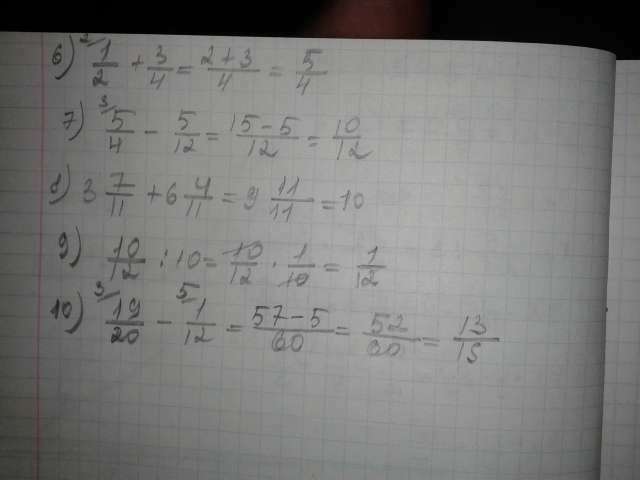 6) 2/ 1/2 + 3/4 = 2+3/4 = 5/4
7) 3/ 5/4 - 5/12 = 15-5/12 = 10/12
8) 3 7/11 + 6 4/11 = 9 11/11 = 10
9) 10/12 : 10 = 10/12 · 1/10 = 1/12
10) 3/ 19/20 - 5/ 1/12 = 57-5/60 = 52/60 = 13/15